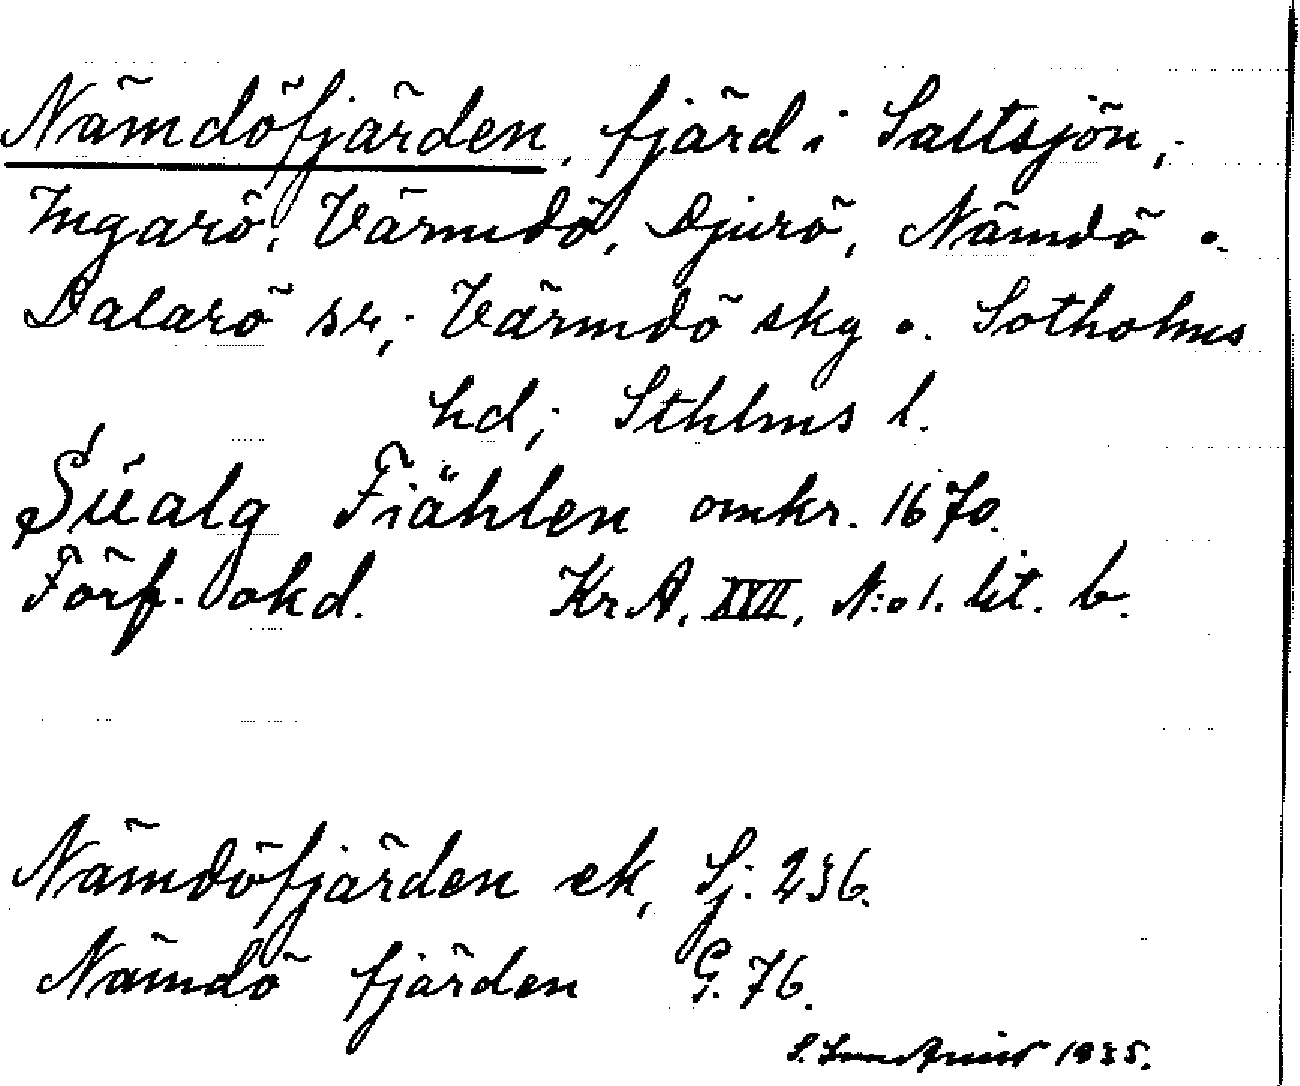 Nämdöfjärden, fjärd i Saltsjön,
Ingarö, Värmdö, Djurö, Nämdö o.
Dalarö sr, Värmdö skg o. Sotholms
hd; Sthlms l.
Súalg Fiählen omkr. 1670.
Förf. okd. Kr A. XVII, N:o 1. lit. b.
Nämdöfjärden ek, Sj. 236.
Nämdö fjärden G. 76.
1935.